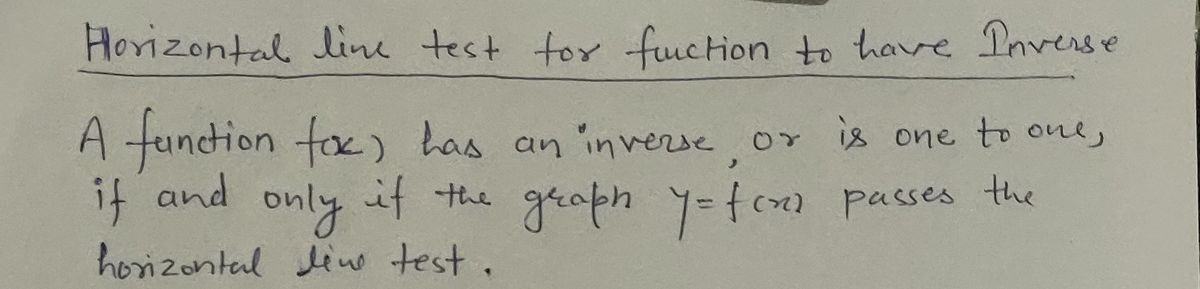 Horizontal line test for fuction to have Inverse
A function f(x) has an inverse, or is one to one,
if and only if the graph y=f(x) passes the
horizontal line test.